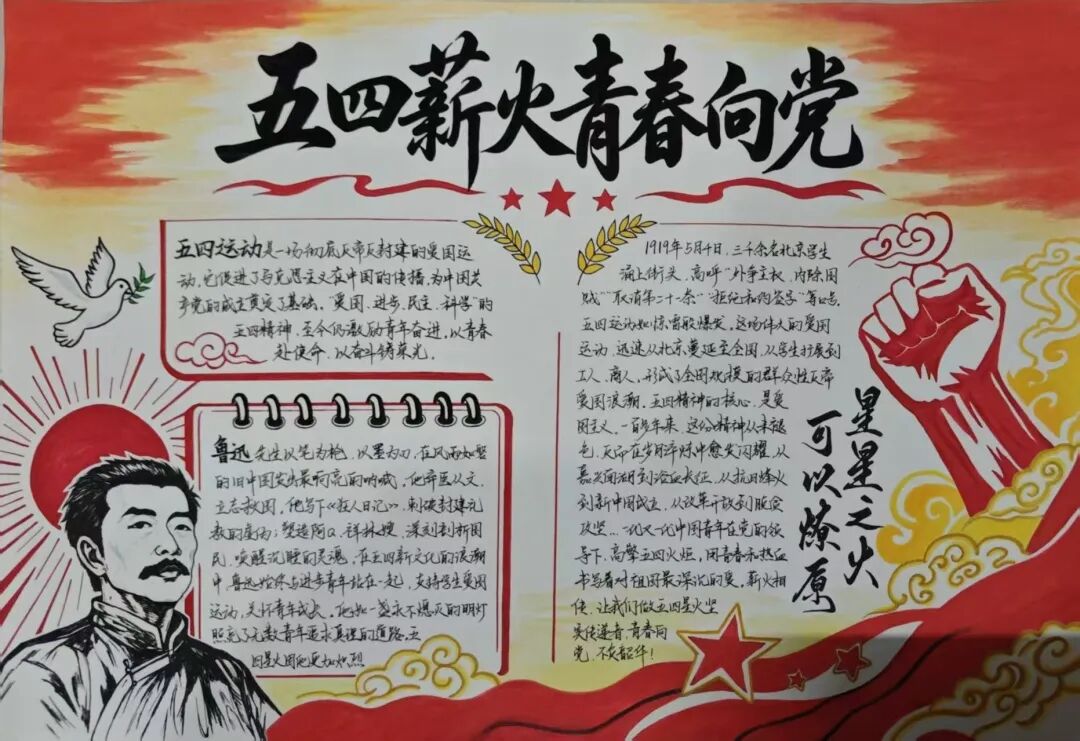 五四薪火青春向党
五四运动是一场彻底反帝反封建的爱国运
动,它促进了马克思主义在中国的传播,为中国共
产党的成立奠定了基础。"爱国、进步、民主、科学"的
五四精神,至今仍激励青年奋进,以青春
赴使命,以奋斗铸荣光。
鲁迅先生以笔为枪,以墨为刀,在风雨如磐
的旧中国发出最响亮的呐喊,他弃医从文,
立志救国,他写下《狂人日记》,刺破封建礼
教的虚伪;塑造阿Q、祥林嫂,深刻剖析国
民,唤醒沉睡的灵魂,在五四新文化的浪潮
中,鲁迅始终与进步青年站在一起,支持学生爱国
运动,关怀青年成长。他如一盏永不熄灭的明灯
照亮了无数青年追求真理的道路,五
四星火因他更加炽烈
1919年5月4日,三千余名北京学生
涌上街头,高呼"外争主权,内除国
贼""取消第二十一条""拒绝和约签字"等口号,
五四运动如惊雷般爆发。这场伟大的爱国
运动,迅速从北京蔓延至全国,从学生扩展到
工人、商人,形成了全国规模的群众性反帝
爱国浪潮。五四精神的核心,是爱
国主义,一百多年来,这份精神从未褪
色,反而在岁月淬炼中愈发闪耀,从
嘉兴南湖到浴血长征,从抗日烽火
到新中国成立,从改革开放到脱贫
攻坚…一代又一代中国青年在党的领
导下,高擎五四火炬,用青春和热血
书写着对祖国最深沉的爱,薪火相
传,让我们做五四星火坚
实传递者,青春向
党,不负韶华!
星星之火
可以燎原